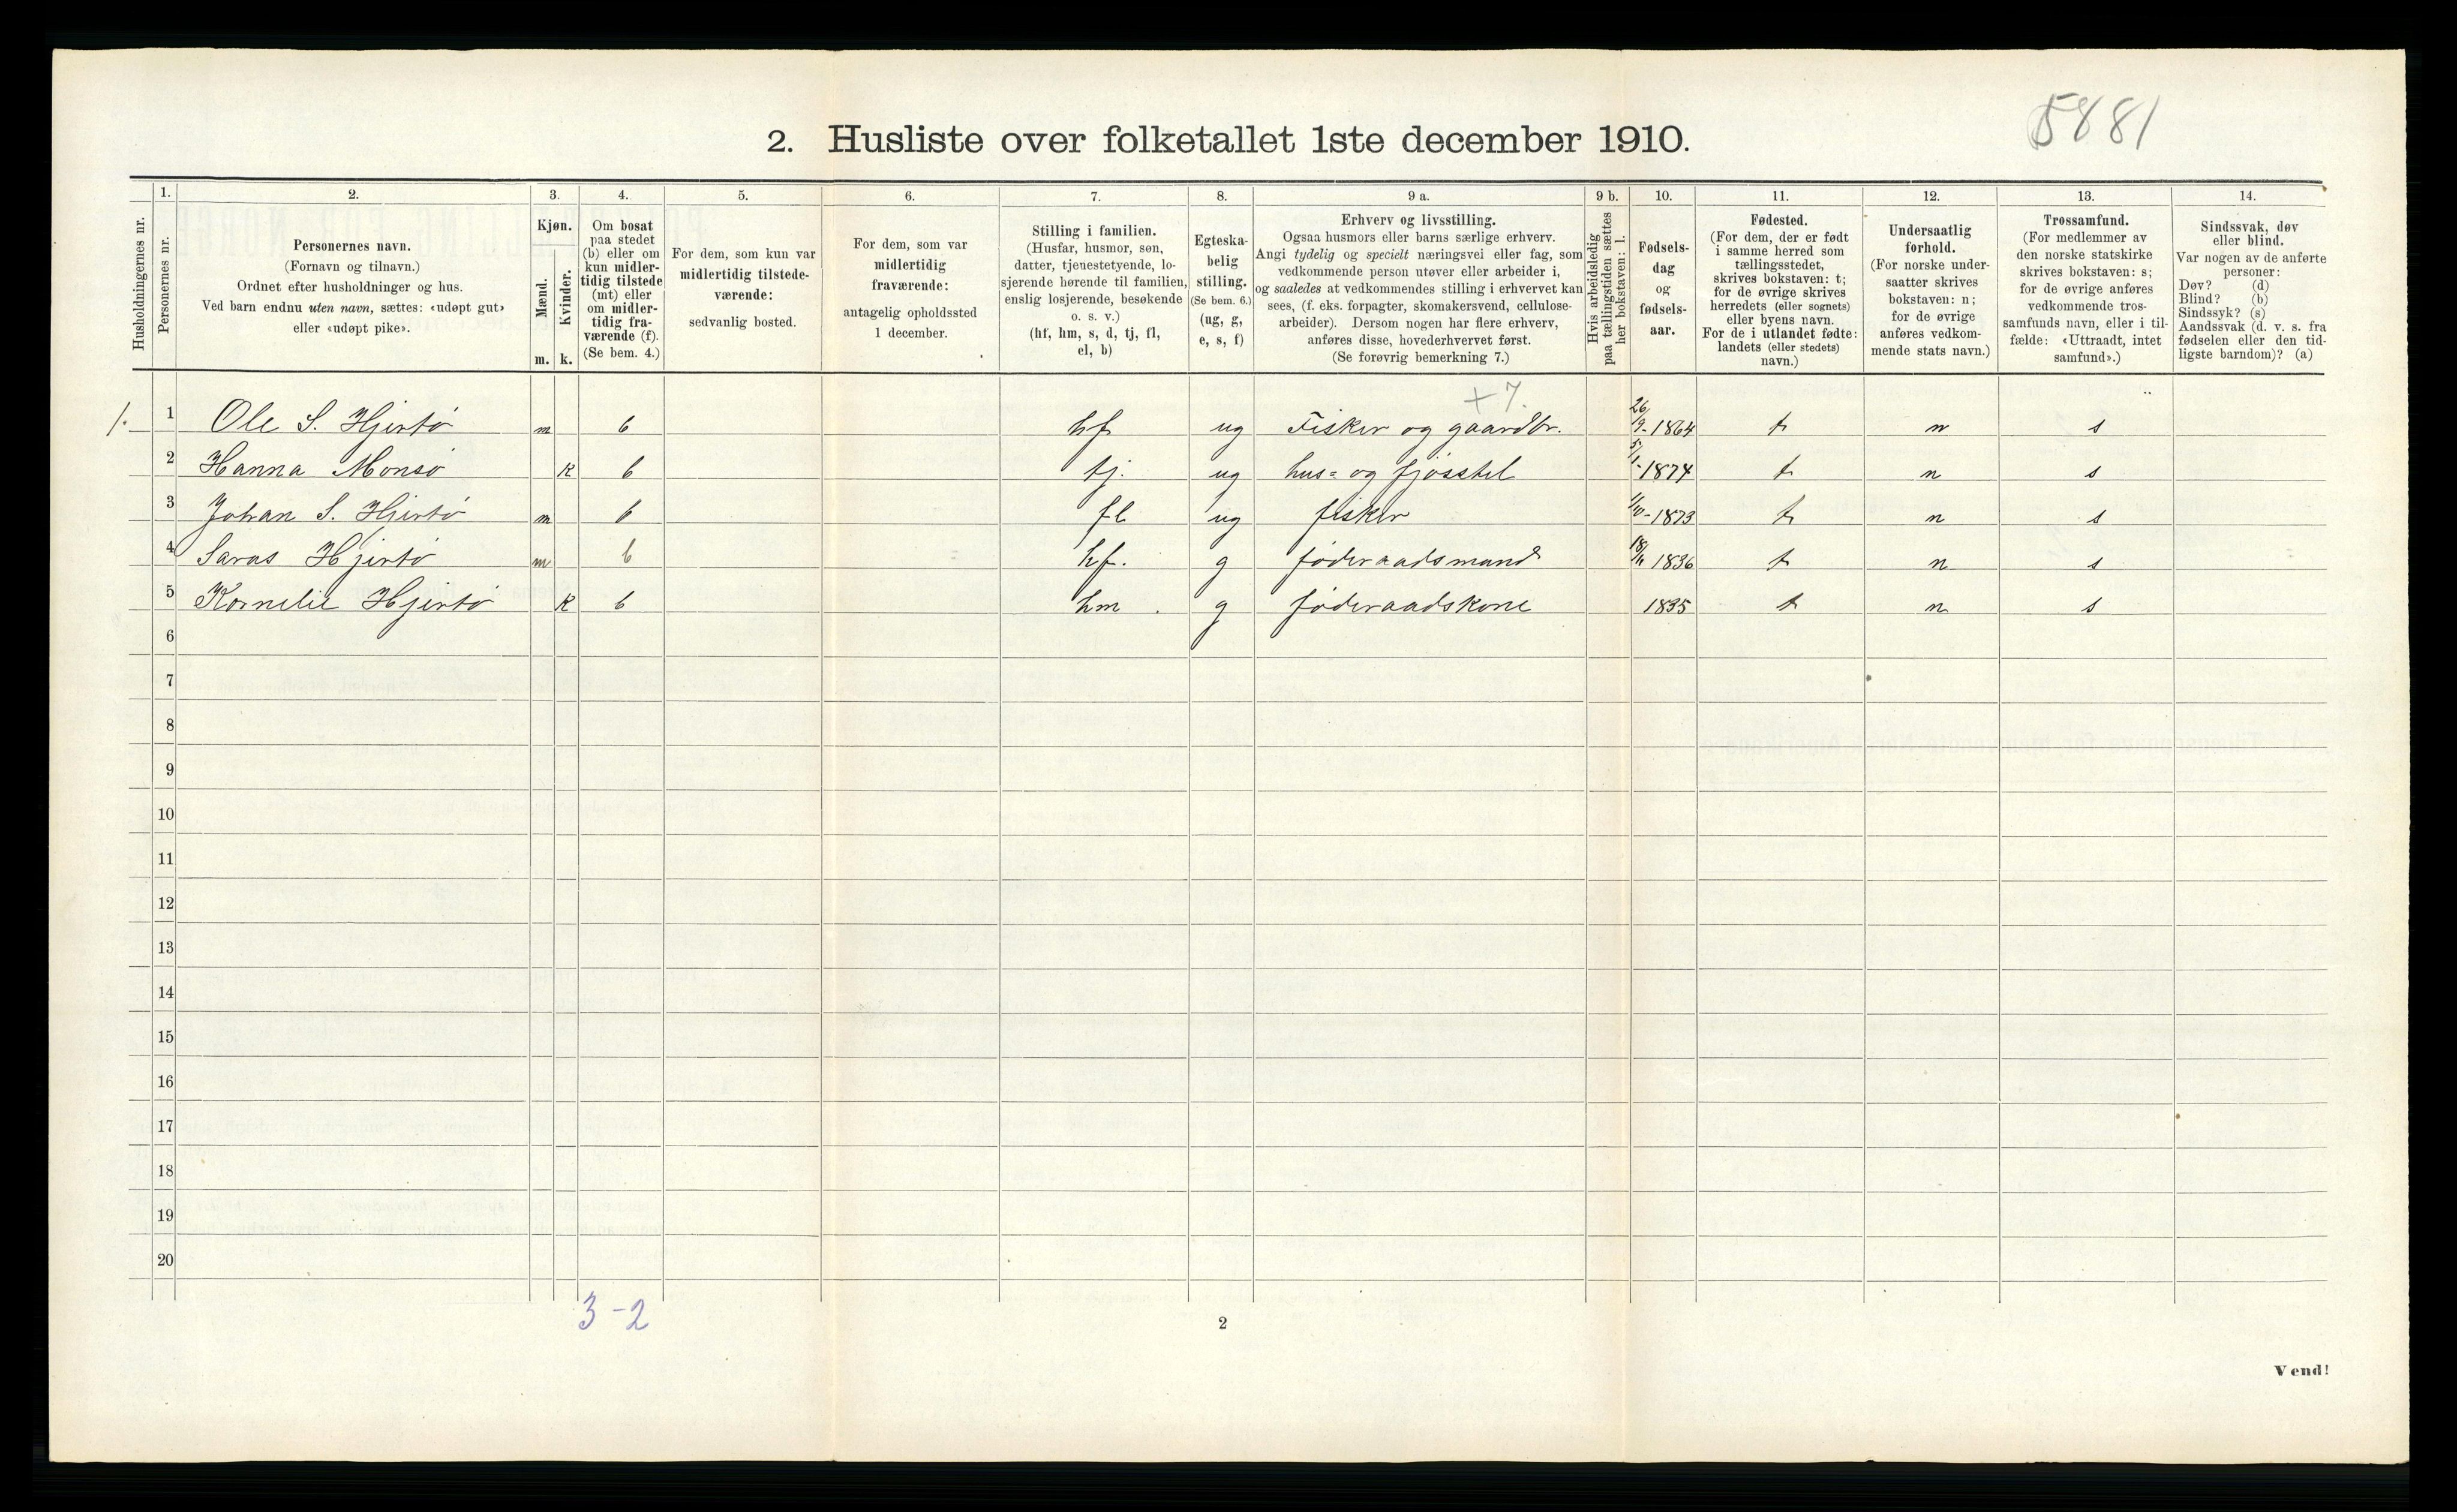 5881
2. Husliste over folketallet 1ste december 1910.
Husholdningernes nr.
1.
Personernes nr.
2.
Personernes navn.
(Fornavn og tilnavn.)
Ordnet efter husholdninger og hus.
Ved barn endnu uten navn, sættes: «udøpt gut»
eller «udøpt pike».
3.
Kjøn.
Mænd.
Kvinder.
m. k.
4.
Om bosat
paa stedet
(b) eller om
kun midler-
tidig tilstede
(mt) eller
om midler-
tidig fra-
værende (f).
(Se bem. 4.)
5.
For dem, som kun var
midlertidig tilstede-
værende:
sedvanlig bosted.
6.
For dem, som var
midlertidig
fraværende:
antagelig opholdssted
1 december.
7.
Stilling i familien.
(Husfar, husmor, søn,
datter, tjenestetyende, lo-
sjerende hørende til familien,
enslig losjerende, besøkende
o. s. v.)
(hf, hm, s, d, tj, fl,
el, b)
8.
Egteska-
belig
stilling.
(Se bem. 6.)
(ug, g,
e, s, f)
9 a.
Erhverv og livsstilling.
Ogsaa husmors eller barns særlige erhverv.
Angi tydelig og specielt næringsvei eller fag, som
vedkommende person utøver eller arbeider i,
og saaledes at vedkommendes stilling i erhvervet kan
sees, (f. eks. forpagter, skomakersvend, cellulose-
arbeider). Dersom nogen har flere erhverv,
anføres disse, hovederhvervet først.
(Se forøvrig bemerkning 7.)
9 b.
Hvis arbeidsledig
paa tællingstiden sættes
her bokstaven: l.
10.
Fødsels-
dag
og
fødsels-
aar.
11.
Fødested.
(For dem, der er født
i samme herred som
tællingsstedet,
skrives bokstaven: t;
for de øvrige skrives
herredets (eller sognets)
eller byens navn.
For de i utlandet fødte:
landets (eller stedets)
navn.)
12.
Undersaatlig
forhold.
(For norske under-
saatter skrives
bokstaven: n;
for de øvrige
anføres vedkom-
mende stats navn.)
13.
Trossamfund.
(For medlemmer av
den norske statskirke
skrives bokstaven: s;
for de øvrige anføres
vedkommende tros-
samfunds navn, eller i til-
fælde: «Uttraadt, intet
samfund».)
14.
Sindssvak, døv
eller blind.
Var nogen av de anførte
personer:
Døv? (d)
Blind? (b)
Sindssyk? (s)
Aandssvak (d. v. s. fra
fødselen eller den tid-
ligste barndom)? (a)
+7.
1. 1 Ole S. Hjertø m b hf ug Fisker og gaardbr. 26/9-1864 t n s
2 Hanna Monsø k b tj. ug hus= og fjøsstel 5/1-1874 t n s
3 Johan S. Hjertø m b fl ug fisker 1/10-1873 t n s
4 Saras Hjertø m b hf. g føderaadsmand 1836 t n s
5 Kornelie Hjertø k b hm. g føderaadskone 1835 t n s
6
7
8
9
10
11
12
13
14
15
16
17
18
19
20
3-2
2
Vend!